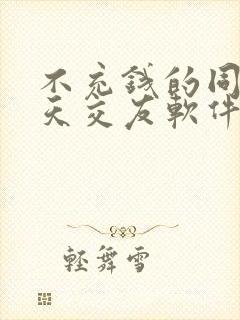 不充錢的同
天交友軟件
輕舞雪